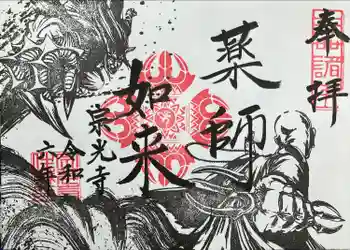 奉拝
薬師
如来
宗光寺
令和
六年